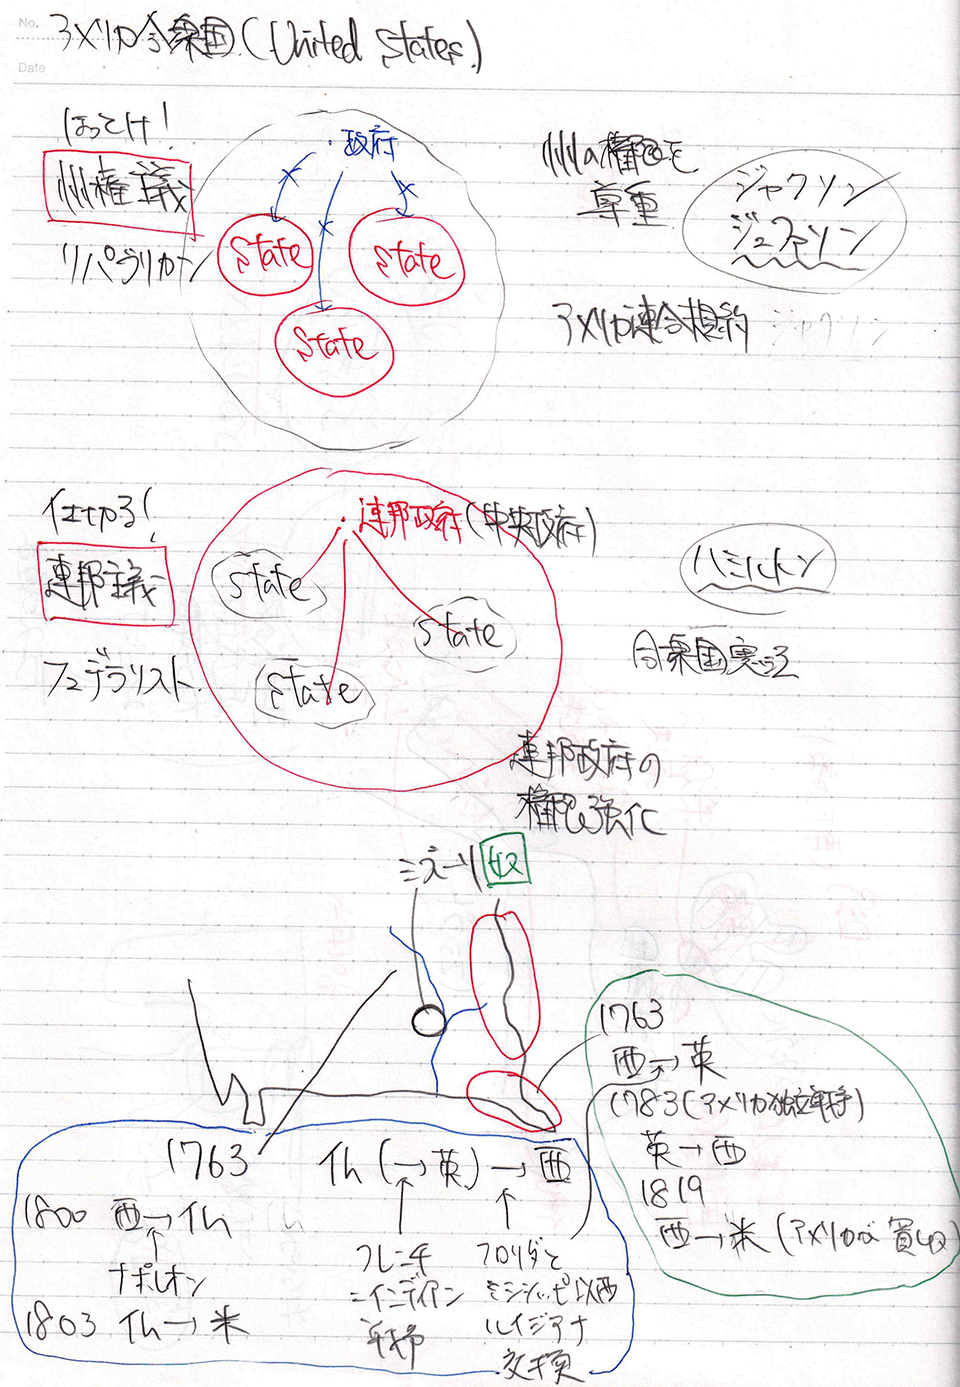 No.
アメリカ合衆国(United States)
Date
ほっとけ!
州権主義
リパブリカン
政府
state
state
state
州の権限を
尊重
ジャクソン
ジェファソン
アメリカ連合規約 ジャクソン
仕切る!
連邦主義
フェデラリスト
連邦政府(中央政府)
state
state
state
ハミルトン
合衆国憲法
連邦政府の
権限強化
収
1763
西→英
1783(アメリカ独立戦争)
英→西
1819
西→米(アメリカが買収)
1763 仏(→英)→西
1800 西→仏
ナポレオン
1803 仏→米
フレンチ
=インディアン
戦争
フロリダと
ミシシッピ以西
ルイジアナ
交換